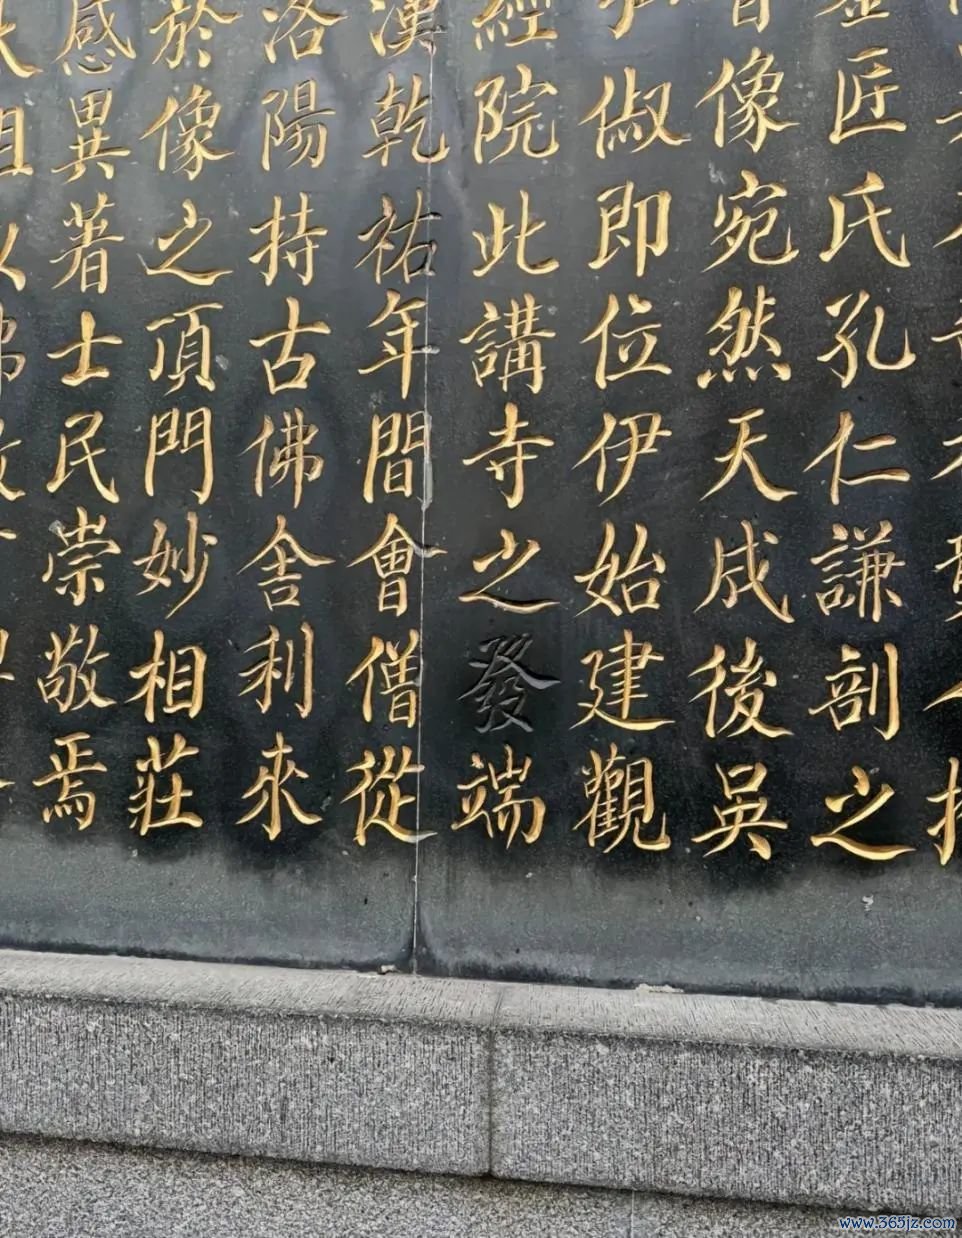 匠氏孔仁謙剖之
像宛然天成後吳
俶即位伊始建觀
經院此講寺之發端
漢乾祐年間會僧從
洛陽持古佛舍利來
於像之頂門妙相莊
感異著士民崇敬焉
www.365jz.com